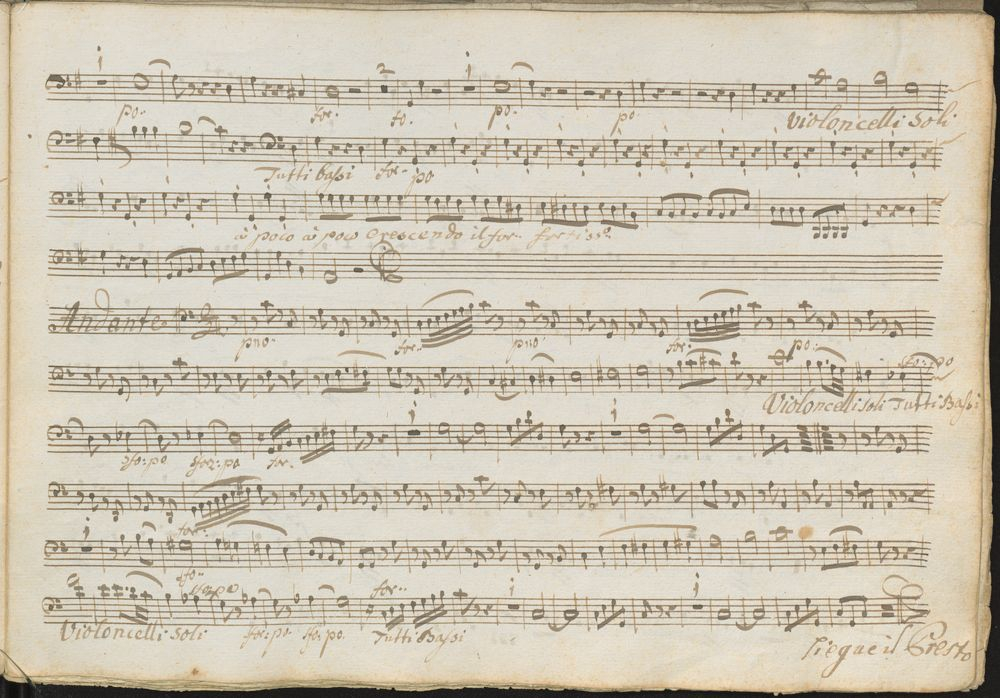 1 2 1
po. for. fo. po. po violoncelli Soli
Tutti bassi for. po
à poco à poco crescendo il for. fortiss:o
Andante
pmo. for. pmo. for. po.
fo. po
Violoncelli soli Tutti Bassi
1 1
sfo: po sforz: po for.
for.
1
sfo.
for. 1 1
Violoncelli Soli for: po. fo: po. Tutti Bassi
Siegue il Presto